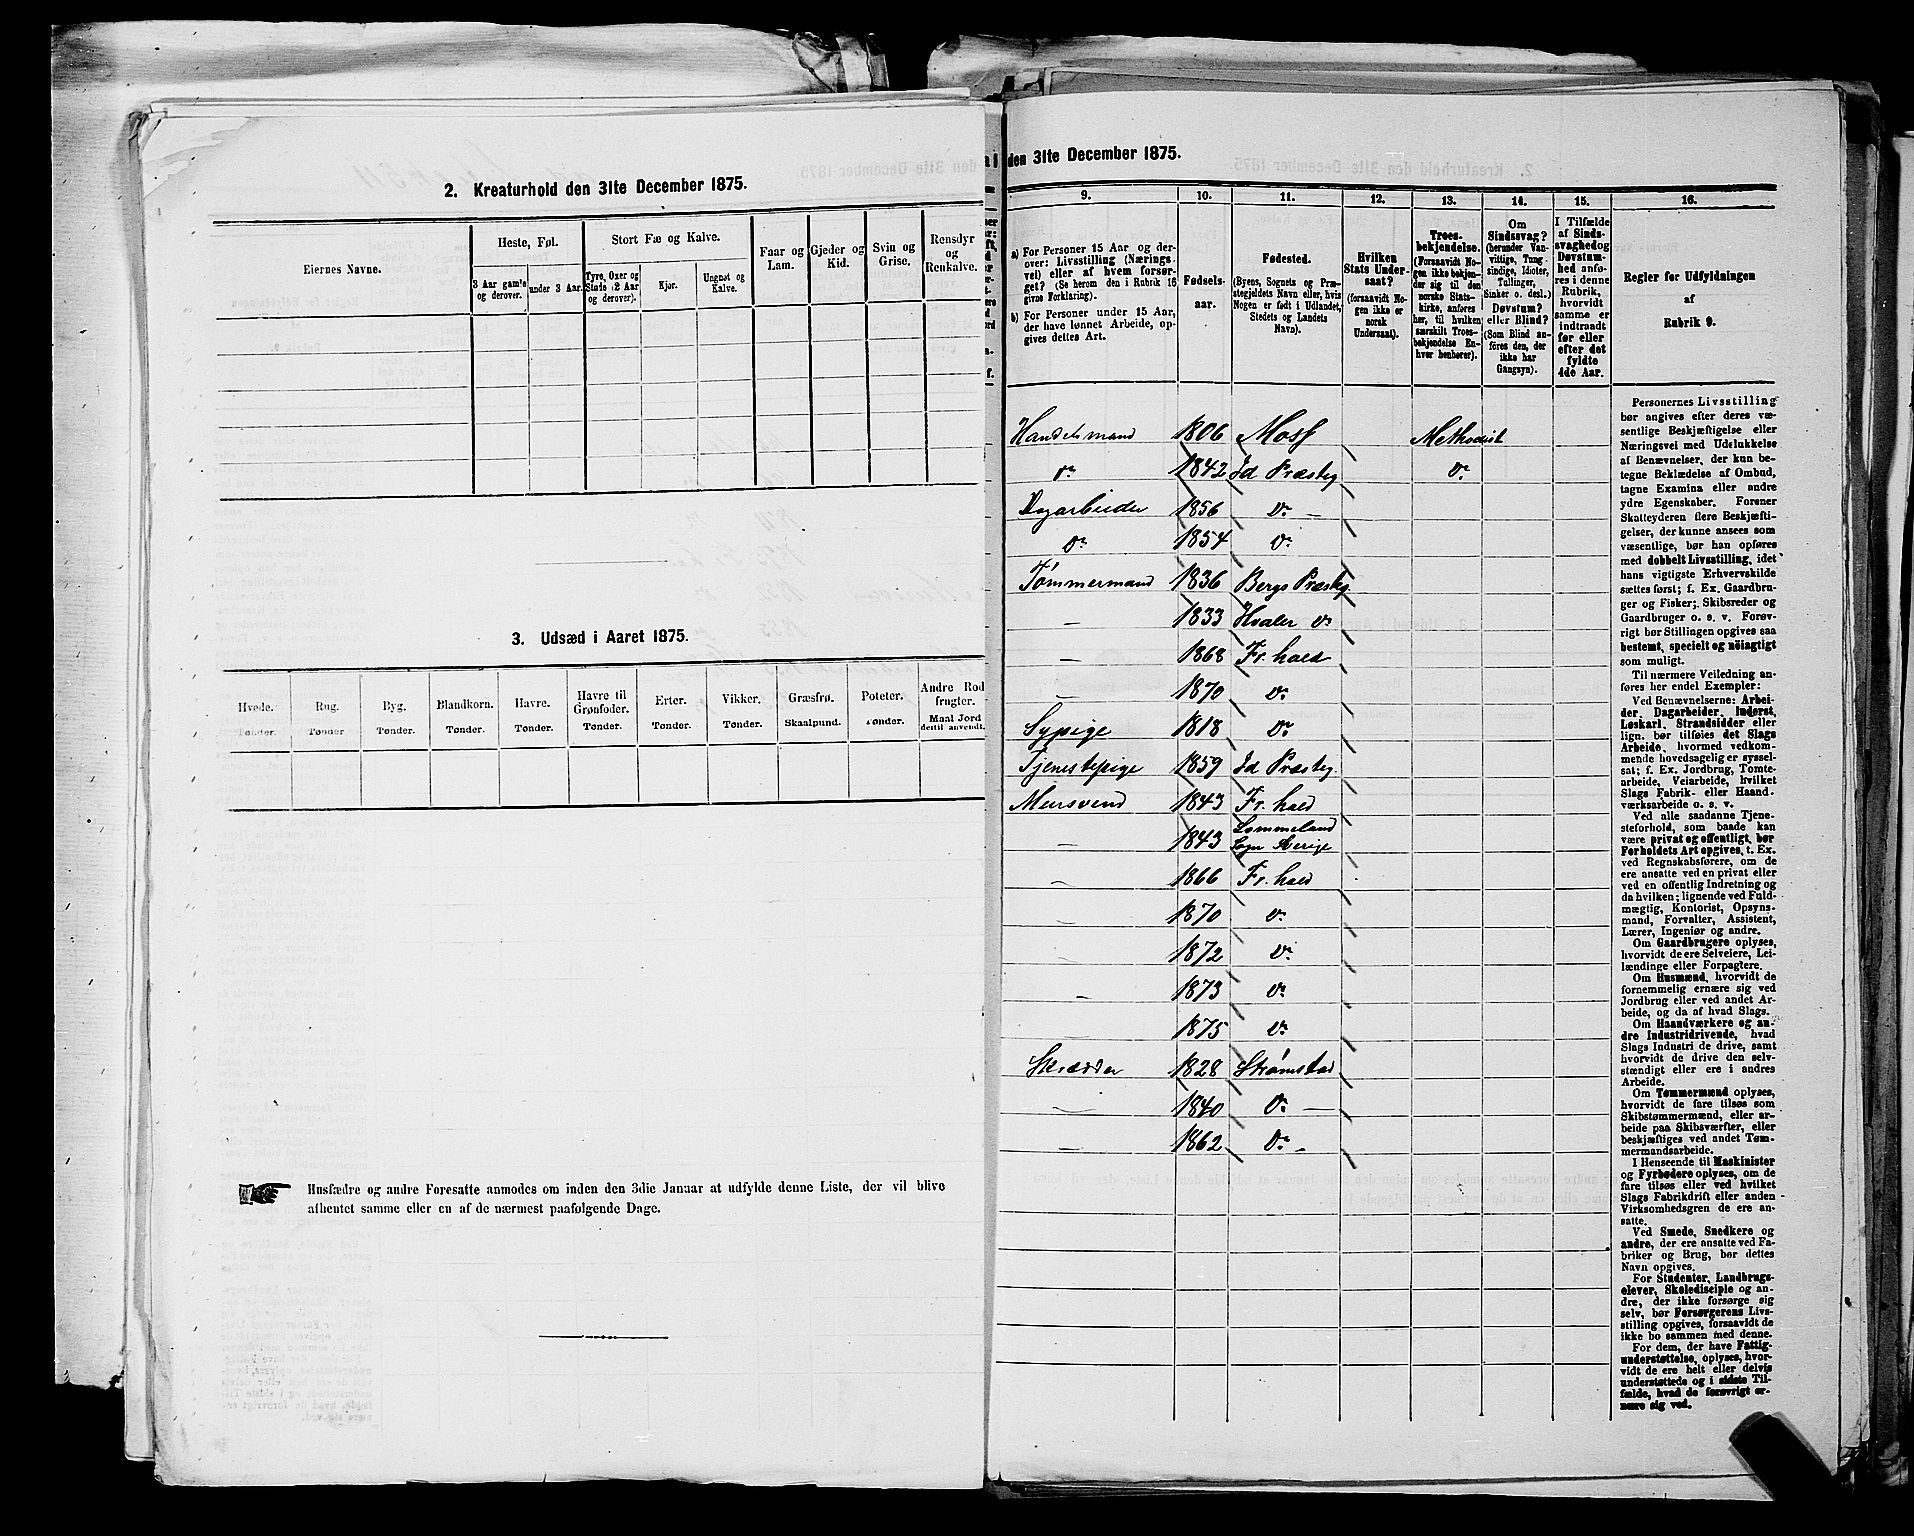 2. Kreaturhold den 31te December 1875.
Eiernes Navne.
Heste, Føl.
3 Aar gamle og derover.
under 3 Aar.
Stort Fæ og Kalve.
Tyre, Oxer og Stude (2 Aar og derover).
Kjør.
Ungnøt og Kalve.
Faar og Lam.
Gjeder og Kid.
Svin og Grise.
Rensdyr og Renkalve.
3. Udsæd i Aaret 1875.
Hvede. Tønder.
Rug. Tønder
Byg. Tønder.
Blandkorn. Tønder.
Havre. Tønder.
Havre til Grønfoder. Tønder.
Erter. Tønder.
Vikker. Tønder.
Græsfrø. Skaalpund.
Poteter. Tønder.
Andre Rodfrugter. Maal Jord dertil anvendt.
Husfædre og andre Foresatte anmodes om inden den 3die Januar at udfylde denne Liste, der vil blive
afhentet samme eller en af de nærmest paafølgende Dage.
den 31te December 1875.
9. 10. 11. 12. 13. 14. 15. 16.
a) For Personer 15 Aar og derover: Livsstilling (Næringsvei) eller af hvem forsørget? (Se herom den i Rubrik 16 givne Forklaring).
b) For Personer under 15 Aar, der have lønnet Arbeide, opgives dettes Art.
Fødselsaar.
Fødested.
(Byens, Sognets og Præstegjeldets Navn eller, hvis Nogen er født i Udlandet, Stedets og Landets Navn).
Hvilken Stats Undersaat?
(forsaavidt Nogen ikke er norsk Undersaat).
Troesbekjendelse.
(Forsaavidt Nogen ikke bekjender sig til den norske Statskirke, anføres her, til hvilken særskilt Troesbekjendelse Enhver henhører).
Om Sindssvag?
(herunder Vanvittige, Tungsindige, Idioter, Tullinger, Sinker o. desl.)
Døvstum?
eller Blind?
(Som Blind anføres den, der ikke har Gangsyn).
I Tilfælde af Sindssvaghed og Døvstumhed anføres i denne Rubrik, hvorvidt samme er indtraadt før eller efter det fyldte 4de Aar.
Regler for Udfyldningen
af
Rubrik 9.
Handelsmand 1806 Moss Methodist
Do 1842 Id Præstg Do
Dagarbeider 1856 Do —
Do 1854 Do
Tømmermand 1836 Bergs Præstg.
— 1833 Hvaler Do
— 1868 Fr. hald
— 1870 Do
Sypige 1818 Do
Tjenestepige 1859 Id Præstg.
Mursvend 1843 Fr. hald
— 1843 Lommeland Sogn Sverige
— 1866 Fr. hald
— 1870 Do
— 1872 Do
— 1873 Do
— 1875 Do
Skrædder 1828 Strømstad
— 1840 Do —
— 1862 Do —
Personernes Livsstilling
bør angives efter deres væ-
sentlige Beskjæftigelse eller
Næringsvei med Udelukkelse
af Benævnelser, der kun be-
tegne Beklædelse af Ombud,
tagne Examina eller andre
ydre Egenskaber. Forener
Skatteyderen flere Beskjæfti-
gelser, der kunne ansees som
væsentlige, bør han opføres
med dobbelt Livsstilling, idet
hans vigtigste Erhvervskilde
sættes først; f. Ex. Gaardbru-
ger og Fisker; Skibsreder og
Gaardbruger o. s. v. Forøv-
rigt bør Stillingen opgives saa
bestemt, specielt og nöiagtigt
som muligt.
Til nærmere Veiledning an-
føres her endel Exempler:
Ved Benævnelserne: Arbei-
der, Dagarbeider, Inderst,
Løskarl, Strandsidder eller
lign. bør tilføies det Slags
Arbeide, hvormed vedkom-
mende hovedsagelig er syssel-
sat; f. Ex. Jordbrug, Tomte-
arbeide, Veiarbeide, hvilket
Slags Fabrik- eller Haand-
værksarbeide o. s. v.
Ved alle saadanne Tjene-
steforhold, som baade kan
være privat og offentligt, bør
Forholdets Art opgives, t. Ex.
ved Regnskabsførere, om de
ere ansatte ved en privat eller
ved en offentlig Indretning og
da hvilken; lignende ved Fuld-
mægtig, Kontorist, Opsyns-
mand, Forvalter, Assistent,
Lærer, Ingeniør og andre.
Om Gaardbrugere oplyses,
hvorvidt de ere Selveiere, Lei-
lændinge eller Forpagtere.
Om Husmænd, hvorvidt de
fornemmelig ernære sig ved
Jordbrug eller ved andet Ar-
beide, og da af hvad Slags.
Om Haandværkere og an-
dre Industridrivende, hvad
Slags Industri de drive, samt
hvorvidt de drive den selv-
stændigt eller ere i andres
Arbeide.
Om Tømmermænd oplyses,
hvorvidt de fare tilsøs som
Skibstømmermænd, eller ar-
beide paa Skibsværfter, eller
beskjæftiges ved andet Tøm-
mermandsarbeide.
I Henseende til Maskinister
og Fyrbødere oplyses, om de
fare tilsøs eller ved hvilket
Slags Fabrikdrift eller anden
Virksomhedsgren de ere an-
satte.
Ved Smede, Snedkere og
andre, der ere ansatte ved Fa-
briker og Brug, bør dettes
Navn opgives.
For Studenter, Landbrugs-
elever, Skoledisciple og an-
dre, der ikke forsørge sig
selv, bør Forsørgerens Livs-
stilling opgives, forsaavidt de
ikke bo sammen med denne.
For dem, der have Fattig-
understøttelse, oplyses, hvor-
vidt de ere helt eller delvis
understøttede og i sidste Til-
fælde, hvad de forøvrigt er-
nære sig ved.